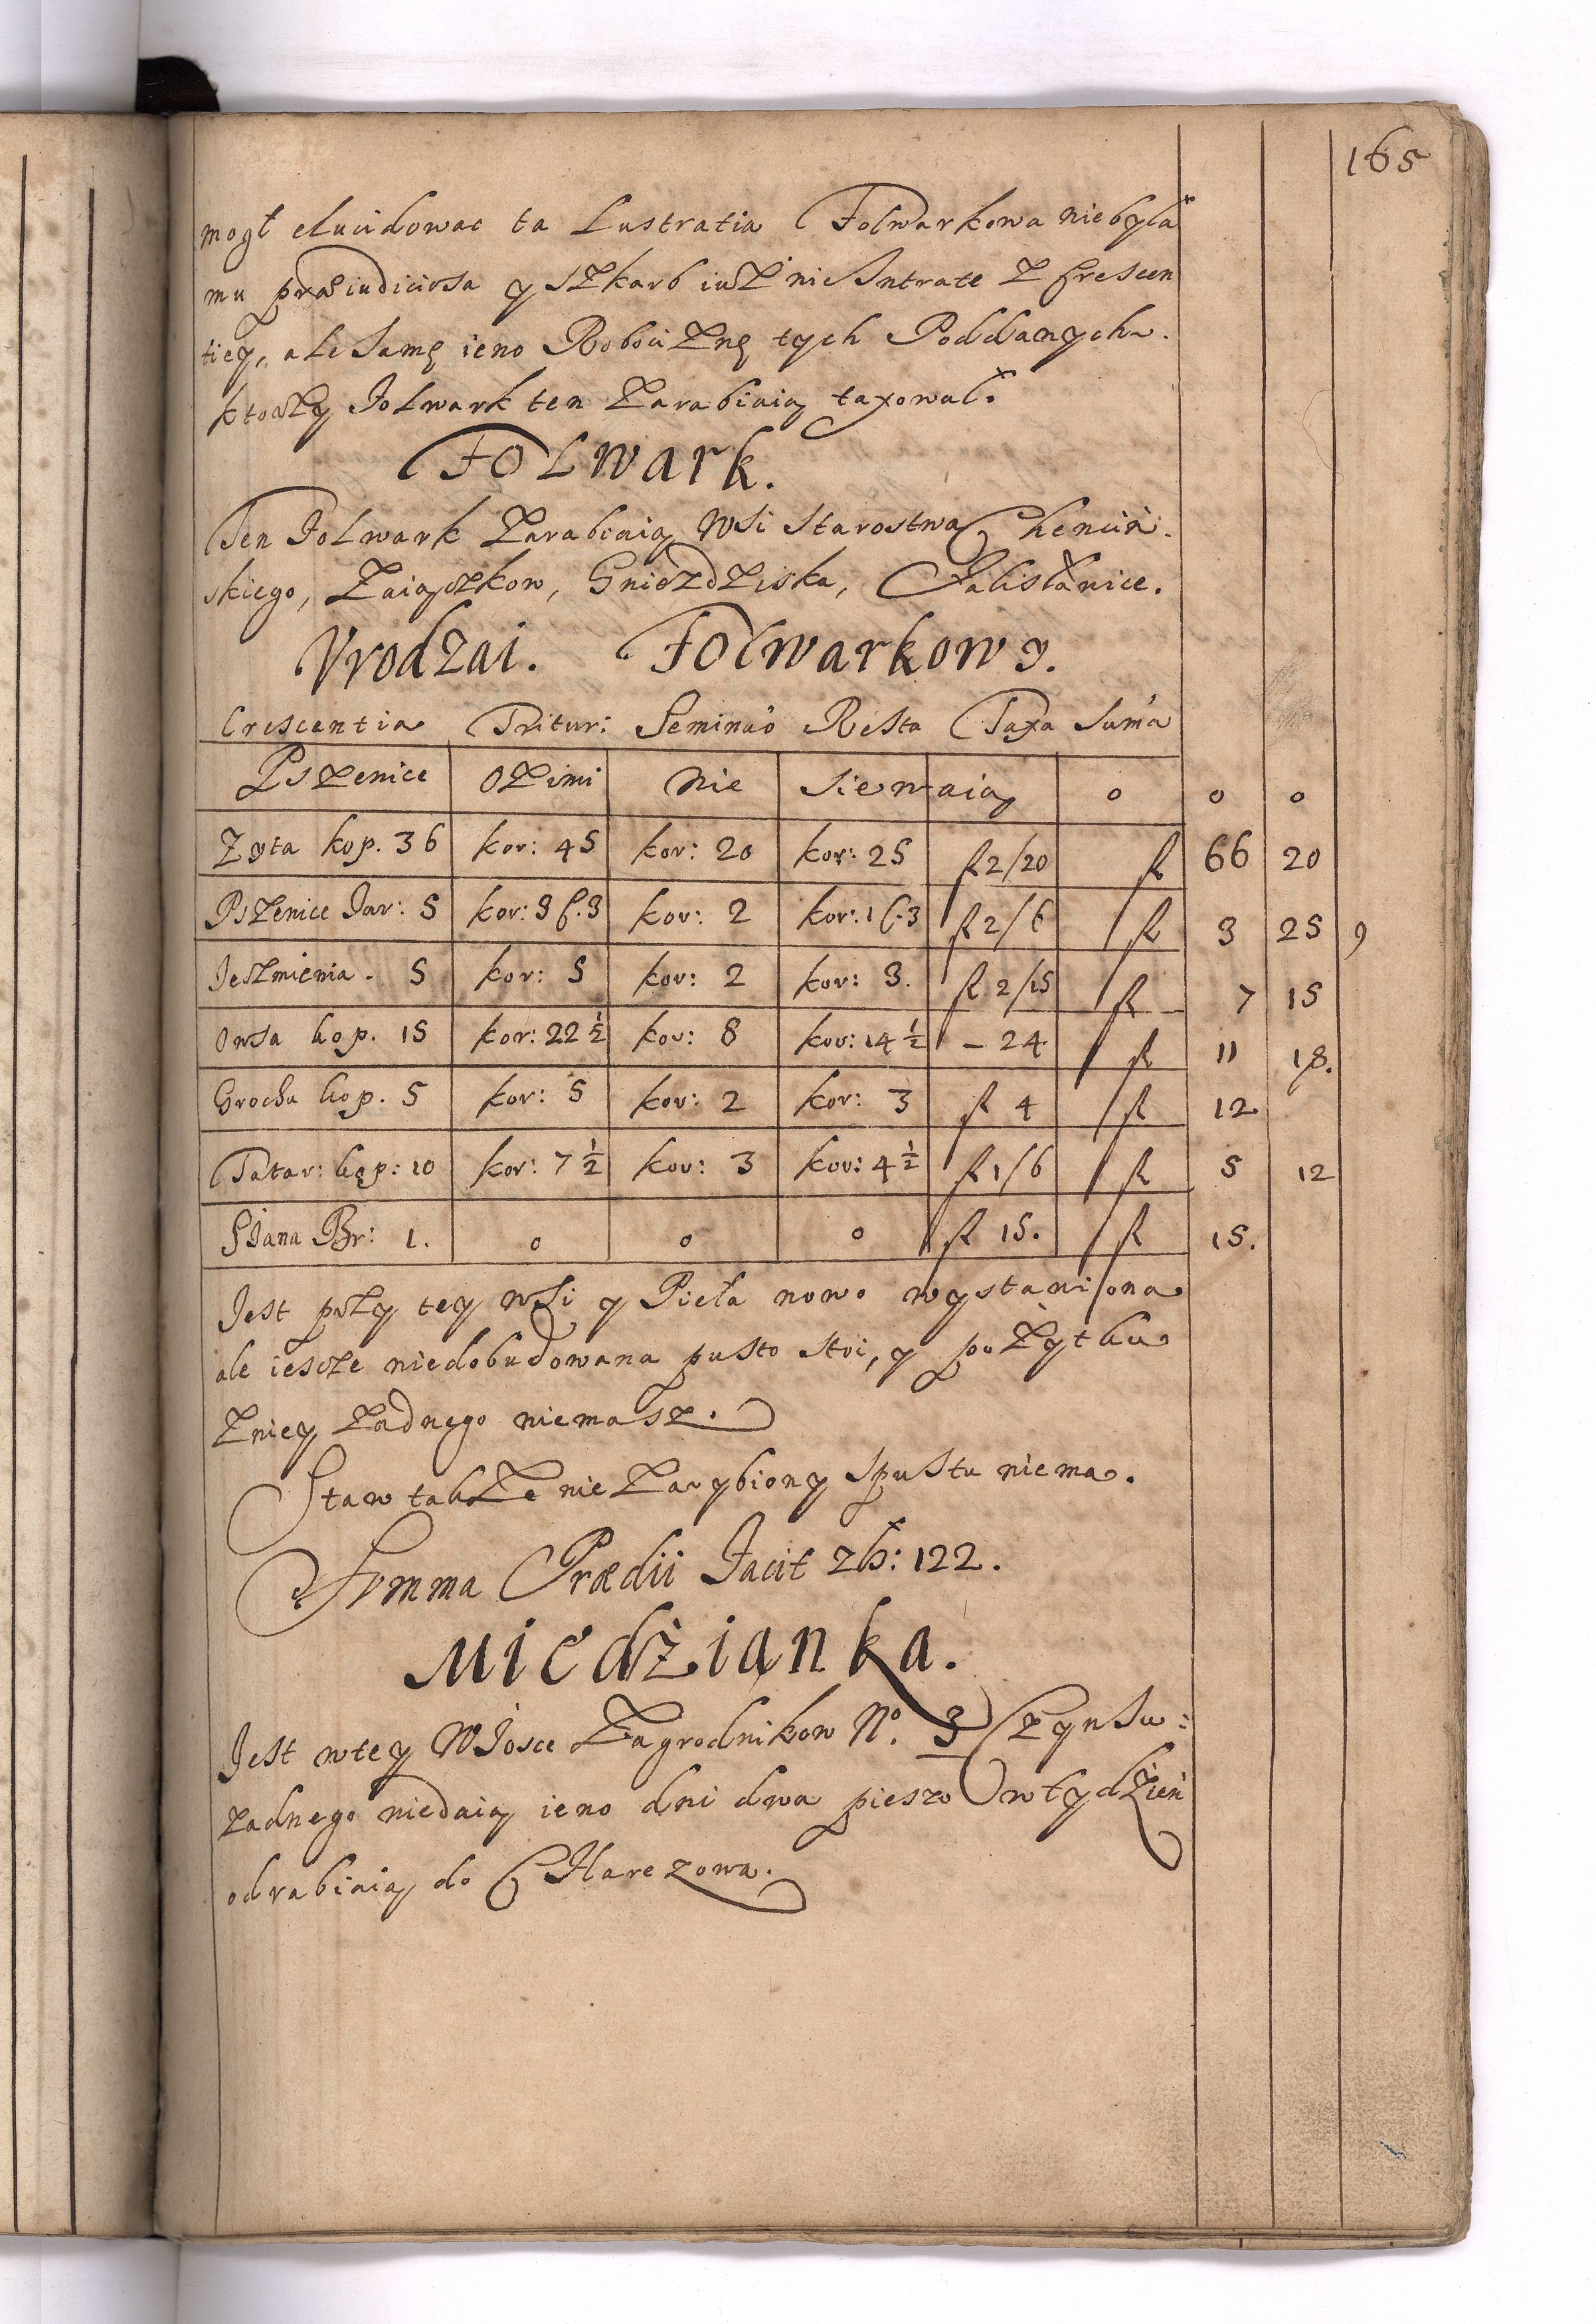 165
mogł elucidowac ta Lustratia Folwarkowa niebyła
mu præiudiciosa y szkarb iuż nie Intrate z Crescen
tiey, ale Samę ieno Robociznę tych Poddanych.
ktorzy Folwark ten zarabiaią taxował.
Folwark.
Ten Folwark zarabiaią Wsi Starostwa Chencin.
skiego, Zaiączkow, Gniezdziska, Fabisłanice.
Vrodzai. Folwarkowy.
Crescentia Tritur: Seminaõ Resta Taxa Suma
Pszenice Ozimi nie siewaią o o o
Zyta kop. 36 kor: 45 kor: 20 kor: 25 fl 2/20 fl 66 20
Pszenice Jar: 5 kor: 3 ć. 3 kor: 2 kor: 1 ć. 3 fl 2/6 fl 3 25 9
Jeszmienia. 5 kor: 5 kor: 2 kor: 3. fl 2/15 fl 7 15
Owsa kop. 15 kor: 22 ½ kor: 8 kor: 14 ½ – 24 fl 11 18.
Grochu kop. 5 kor: 5 kor: 2 kor: 3 fl 4 fl 12
Tatar: kop: 10 kor: 7 ½ kor: 3 kor: 4 ½ fl 1/6 fl 5 12
Siana Br: 1. o o o fl 15. fl 15.
Jest przy tey wsi y Pieła nowo wystawiona
ale iescze niedobudowana pusto stoi, y pożytku
zniey żadnego niemasz.
Staw takze nie zarybiony spustu niema.
Summa Prædii Facit zł: 122.
Miedzianka.
Jest wtey Wiosce Zagrodnikow No. 3 Czynsu:
zadnego niedaią ieno dni dwa pieszo w tydzień
odrabiaią do Charezowa.